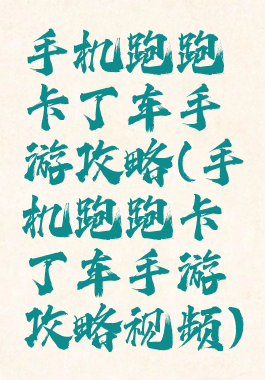 手机跑跑
卡丁车手
游攻略(手
机跑跑卡
丁车手游
攻略视频)